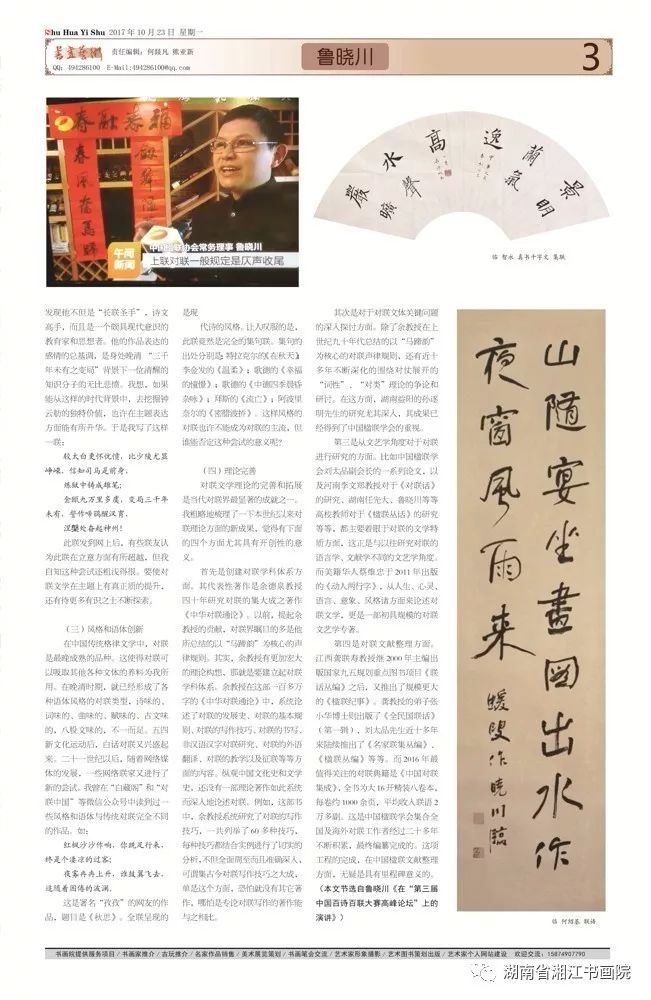 Shu Hua Yi Shu 2017年10月23日 星期一
书画艺术
QQ：494286100 E-Mail:494286100@qq.com
鲁晓川
3
春融泰福
春风
午间
新闻
中国楹联协会常务理事 鲁晓川
上联对联一般规定是仄声收尾
景明
兰气
逸
高
水
声
岩旷
临 智永 真书千字文 集联
发现他不但是“长联圣手”，诗文
高手，而且是一个颇具现代意识的
教育家和思想者。他的作品表达的
感情的总基调，是身处晚清 “三千
年未有之变局”背景下一位清醒的
知识分子的无比悲愤。我想，如果
能从这样的时代背景中，去挖掘钟
云舫的独特价值，也许在主题表达
方面能有所升华。于是我写了这样
一联：
较太白更怀忧愤，比少陵尤显
峥嵘，信知司马是前身，
炼狱中铸成雄笔；
金瓯九万里多虞，变局三千年
未有，誓作啼鹃醒汉胄，
涅槃处奋起神州！
此联发到网上后，有些联友认
为此联在立意方面有所超越，但我
自知这种尝试还粗浅得很。要使对
联文学在主题上有真正质的提升，
还有待更多有识之士不断探索。
（三）风格和语体创新
在中国传统格律文学中，对联
是最晚成熟的品种。这使得对联可
以吸取其他各种文体的养料为我所
用。在晚清时期，就已经形成了各
种语体风格的对联类型，诗味的、
词味的、曲味的、赋味的、古文味
的，八股文味的，不一而足。五四
新文化运动后，白话对联又兴盛起
来。二十一世纪以后，随着网络媒
体的发展，一些网络联家又进行了
新的尝试。我曾在“白藏阁”和“对
联中国”等微信公众号中读到过一
些风格和语体与传统对联完全不同
的作品。如：
红枫沙沙作响，你跳足行来，
终是个凄凉的过客；
夜雾冉冉上升，谁鼓翼飞去，
连随着困倦的波澜。
这是署名“孜孜”的网友的作
品，题目是《秋思》。全联呈现的
是现
代诗的风格。让人叹服的是，
此联竟然是完全的集句联。集句的
出处分别是：特拉克尔的《在秋天》；
李金发的《温柔》；歌德的《幸福
的憧憬》；歌德的《中德四季晨昏
杂咏》；拜斯的《流亡》；阿波里
奈尔的《密腊波桥》。这样风格的
对联也许不能成为对联的主流，但
谁能否定这种尝试的意义呢？
（四）理论完善
对联文学理论的完善和拓展
是当代对联界最显著的成就之一。
我粗略地梳理了一下本世纪以来对
联理论方面的新成果，觉得有下面
的四个方面尤其具有开创性的意
义。
首先是创建对联学科体系方
面。其代表性著作是余德泉教授
四十年研究对联的集大成之著作
《中华对联通论》。以前，提起余
教授的贡献，对联界瞩目的多是他
所总结的以“马蹄韵”为核心的声
律规则。其实，余教授有更加宏大
的理论构想，那就是要建立起对联
学科体系。余教授在这部一百多万
字的《中华对联通论》中，系统论
述了对联的发展史、对联的基本规
则、对联的写作技巧、对联的书写、
非汉语汉字对联研究、对联的外语
翻译、对联的教学以及征联等等方
面的内容。纵观中国文化史和文学
史，还没有一部理论著作如此系统
而深入地论述对联。例如，这部书
中，余教授系统研究了对联的写作
技巧，一共列举了60多种技巧，
每种技巧都结合实例进行了切实的
分析，不但全面周至而且准确深入，
可谓集古今对联写作技巧之大成，
单是这个方面，恐怕就没有其它著
作，哪怕是专论对联写作的著作能
与之相比。
其次是对于对联文体关键问题
的深入探讨方面。除了余教授在上
世纪九十年代总结的以“马蹄韵”
为核心的对联声律规则，还有近十
多年不断深化的围绕对仗展开的
“词性”、“对类”理论的争论和
研讨。在这方面，湖南益阳的孙逐
明先生的研究尤其深入，其成果已
经得到了中国楹联学会的重视。
第三是从文艺学角度对于对联
进行研究的方面。比如中国楹联学
会刘太品副会长的一系列论文，以
及河南李文郑教授对于《对联话》
的研究、湖南任先大、鲁晓川等等
高校教师对于《楹联丛话》的研究
等等，都主要着眼于对联的文学特
质方面，这正是与以往研究对联的
语言学、文献学不同的文艺学角度。
而美籍华人蔡维忠于2011年出版
的《动人两行字》，从人生、心灵、
语言、意象、风格诸方面来论述对
联文学，更是一部初具规模的对联
文艺学专著。
第四是对联文献整理方面。
江西龚联寿教授继2000年主编出
版国家九五规划重点图书项目《联
话丛编》之后，又推出了规模更大
的《楹联纪事》。龚教授的弟子张
小华博士则出版了《全民国联话》
（第一辑），刘太品先生近十多年
来陆续推出了《名家联集丛编》、
《楹联丛编》等等。而2016年最
值得关注的对联典籍是《中国对联
集成》，全书为大16开精装八卷本，
每卷约1000余页，平均收入联语2
万多副。这是中国楹联学会集合全
国及海外对联工作者经过二十多年
不断积累，最终编纂完成的。这项
工程的完成，在中国楹联文献整理
方面，无疑是具有里程碑意义的。
（本文节选自鲁晓川《在“第三届
中国百诗百联大赛高峰论坛”上的
演讲》）
山随宴坐画图出水作
夜窗风雨来
蝯叟作 晓川临
临 何绍基 联语
书画院提供服务项目 / 书画家推介 / 古玩推介 / 名家作品销售 / 美术展览策划 / 书画笔会交流 / 艺术家形象摄影 / 艺术图书策划出版 / 艺术家个人网站建设 欢迎交流：15874907790
湖南省湘江书画院